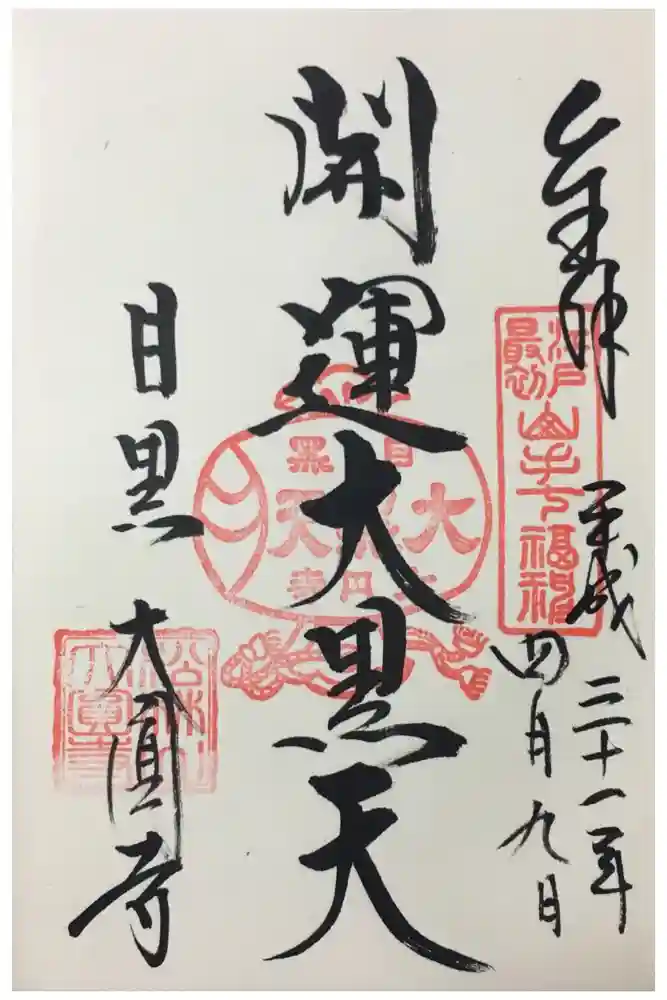 奉拝
平成三十一年
四月九日
江戸
最初
山手七福神
開運大黒天
目黒
大黒天
大円寺
目黒 大圓寺